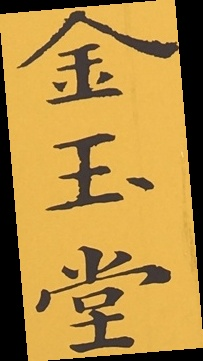 金玉堂